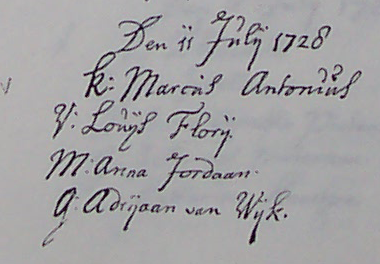 Den 11 Julÿ 1728
k: Marcus Antonius
V: Louÿs Florÿ.
M: Anna Jordaan.
G: Adrijaan van Wijk.